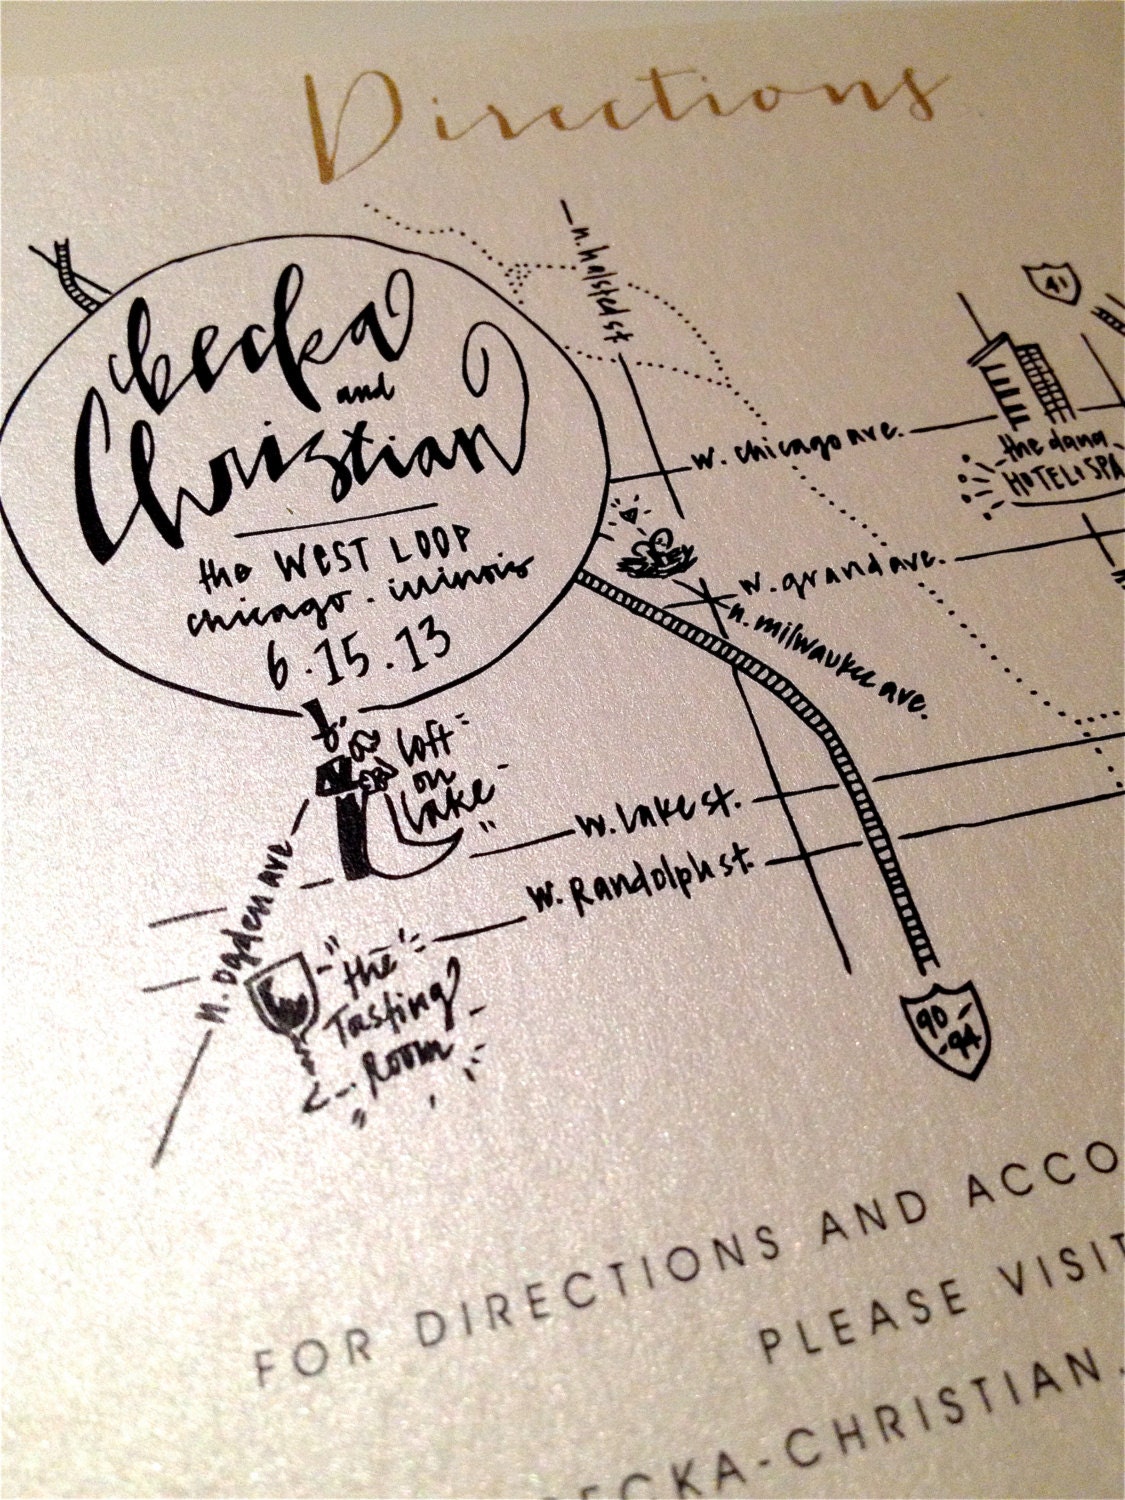 Directions
becka
and
Christian
the WEST LOOP
chicago . illinois
6.15.13
n. halsted st
41
w. chicago ave.
the dana
HOTEL & SPA
w. grand ave.
n. milwaukee ave.
Loft
on
Lake
w. Lake st.
w. Randolph st.
n. ogden ave
the
Tasting
Room
90
94
FOR DIRECTIONS AND ACCO
PLEASE VISIT
ECKA-CHRISTIAN.